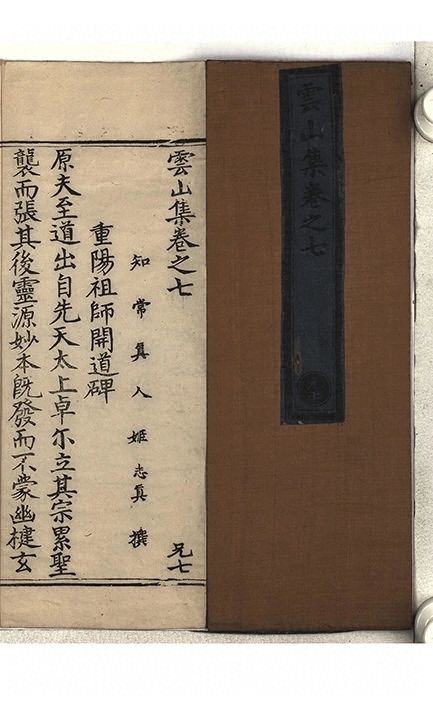 雲山集卷之七
兄七
雲山集卷之七
兄七
知常真人姬志真撰
重陽祖師開道碑
原夫至道出自先天太上卓尔立其宗累聖
襲而張其後靈源妙本旣發而不蒙幽楗玄